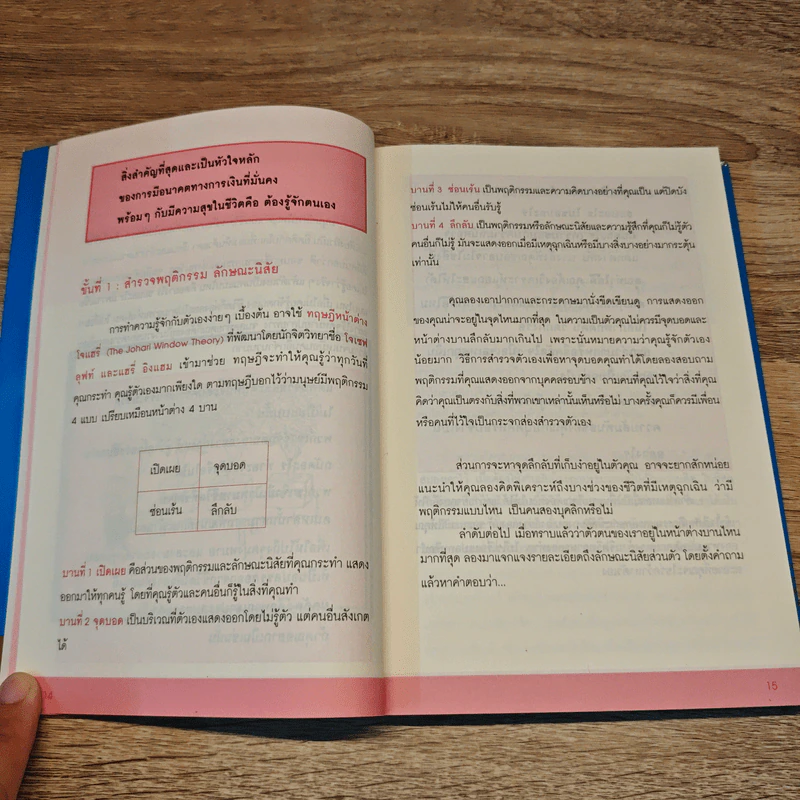 สิ่งสำคัญที่สุดและเป็นหัวใจหลัก
ของการมีอนาคตทางการเงินที่มั่นคง
พร้อมๆ กับมีความสุขในชีวิตคือ ต้องรู้จักตนเอง
ขั้นที่ 1 : สำรวจพฤติกรรม ลักษณะนิสัย
การทำความรู้จักกับตัวเองง่ายๆ เบื้องต้น อาจใช้ ทฤษฎีหน้าต่าง
โจแฮรี่ (The Johari Window Theory) ที่พัฒนาโดยนักจิตวิทยาชื่อ โจเซฟ
ลุฟท์ และแฮรี่ อิงแฮม เข้ามาช่วย ทฤษฎีจะทำให้คุณรู้ว่าทุกวันที่
คุณกระทำ คุณรู้ตัวเองมากเพียงใด ตามทฤษฎีบอกไว้ว่ามนุษย์มีพฤติกรรม
4 แบบ เปรียบเหมือนหน้าต่าง 4 บาน
เปิดเผย จุดบอด
ซ่อนเร้น ลึกลับ
บานที่ 1 เปิดเผย คือส่วนของพฤติกรรมและลักษณะนิสัยที่คุณกระทำ แสดง
ออกมาให้ทุกคนรู้ โดยที่คุณรู้ตัวและคนอื่นก็รู้ในสิ่งที่คุณทำ
บานที่ 2 จุดบอด เป็นบริเวณที่ตัวเองแสดงออกโดยไม่รู้ตัว แต่คนอื่นสังเกต
ได้
14
บานที่ 3 ซ่อนเร้น เป็นพฤติกรรมและความคิดบางอย่างที่คุณเป็น แต่ปิดบัง
ซ่อนเร้นไม่ให้คนอื่นรับรู้
บานที่ 4 ลึกลับ เป็นพฤติกรรมหรือลักษณะนิสัยและความรู้สึกที่คุณก็ไม่รู้ตัว
คนอื่นก็ไม่รู้ มันจะแสดงออกเมื่อมีเหตุฉุกเฉินหรือมีบางสิ่งบางอย่างมากระตุ้น
เท่านั้น
คุณลองเอาปากกาและกระดาษมานั่งขีดเขียนดู การแสดงออก
ของคุณน่าจะอยู่ในจุดไหนมากที่สุด ในความเป็นตัวคุณไม่ควรมีจุดบอดและ
หน้าต่างบานลึกลับมากเกินไป เพราะนั่นหมายความว่าคุณรู้จักตัวเอง
น้อยมาก วิธีการสำรวจตัวเองเพื่อหาจุดบอดคุณทำได้โดยลองสอบถาม
พฤติกรรมที่คุณแสดงออกจากบุคคลรอบข้าง ถามคนที่คุณไว้ใจว่าสิ่งที่คุณ
คิดว่าคุณเป็นตรงกับสิ่งที่พวกเขาเหล่านั้นเห็นหรือไม่ บางครั้งคุณก็ควรมีเพื่อน
หรือคนที่ไว้ใจเป็นกระจกส่องสำรวจตัวเอง
ส่วนการจะหาจุดลึกลับที่เก็บงำอยู่ในตัวคุณ อาจจะยากสักหน่อย
แนะนำให้คุณลองคิดพิเคราะห์ถึงบางช่วงของชีวิตที่มีเหตุฉุกเฉิน ว่ามี
พฤติกรรมแบบไหน เป็นคนสองบุคลิกหรือไม่
ลำดับต่อไป เมื่อทราบแล้วว่าตัวตนของเราอยู่ในหน้าต่างบานไหน
มากที่สุด ลองมาแจกแจงรายละเอียดถึงลักษณะนิสัยส่วนตัว โดยตั้งคำถาม
แล้วหาคำตอบว่า...
15